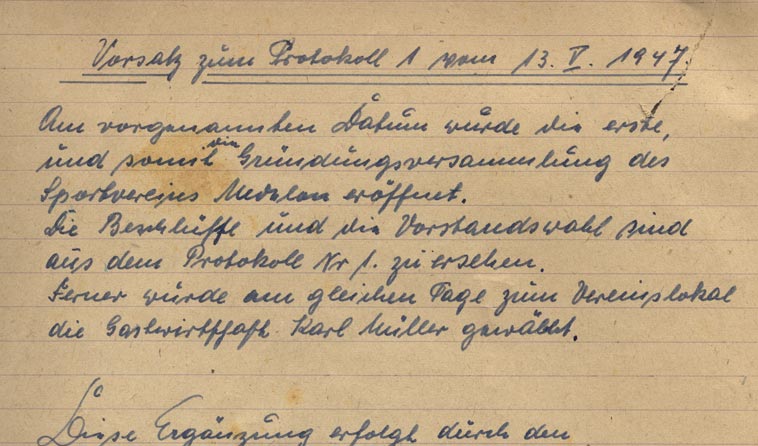 Vorsatz zum Protokoll 1 vom 13. V. 1947.
Am vorgenannten Datum wurde die erste,
und somit die Gründungsversammlung des
Sportvereins Medelon eröffnet.
Die Beschlüsse und die Vorstandswahl sind
aus dem Protokoll Nr 1. zu ersehen.
Ferner wurde am gleichen Tage zum Vereinslokal
die Gastwirtschaft Karl Müller gewählt.
Diese Ergänzung erfolgt durch den